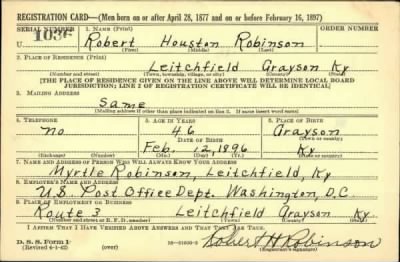 REGISTRATION CARD—(Men born on or after April 28, 1877 and on or before February 16, 1897)
SERIAL NUMBER 1. NAME (Print)
U 1036 Robert Houston Robinson
(First) (Middle) (Last)
2. PLACE OF RESIDENCE (Print)
Leitchfield Grayson Ky
(Number and street) (Town, township, village, or city) (County) (State)
[THE PLACE OF RESIDENCE GIVEN ON THE LINE ABOVE WILL DETERMINE LOCAL BOARD
JURISDICTION; LINE 2 OF REGISTRATION CERTIFICATE WILL BE IDENTICAL]
3. MAILING ADDRESS
Same
[Mailing address if other than place indicated on line 2. If same insert word same]
4. TELEPHONE 5. AGE IN YEARS 6. PLACE OF BIRTH
no 46 Grayson
DATE OF BIRTH (Town or county)
Feb. 12, 1896 Ky
(Exchange) (Number) (Mo.) (Day) (Yr.) (State or country)
7. NAME AND ADDRESS OF PERSON WHO WILL ALWAYS KNOW YOUR ADDRESS
Myrtle Robinson, Leitchfield, Ky
8. EMPLOYER'S NAME AND ADDRESS
U.S. Post Office Dept. Washington, D.C.
9. PLACE OF EMPLOYMENT OR BUSINESS
Route 3 Leitchfield Grayson Ky
(Number and street or R. F. D. number) (Town) (County) (State)
I AFFIRM THAT I HAVE VERIFIED ABOVE ANSWERS AND THAT THEY ARE TRUE.
D. S. S. Form 1 Robert H Robinson
(Revised 4-1-42) (over) (Registrant's signature)